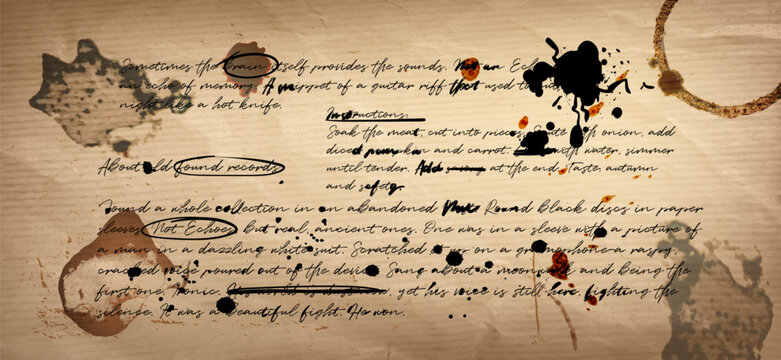 Sometimes the brain itself provides the sounds. Ech
an echo of memory. A snippet of a guitar riff that used to
night like a hot knife.
Instructions:
Soak the meat, cut into pieces. with onion, add
diced pumpkin and carrot. with water, simmer
until tender. Add at the end. Taste: autumn
and safety.
About old found records
Found a whole collection in an abandoned Round black discs in paper
sleeves. Not Echoes. But real, ancient ones. One was in a sleeve with a picture of
a man in a dazzling white suit. Scratched it up on a gramophone a raspy,
cracked voice poured out of the device. Sang about a moonwalk and being the
first one. Ironic. yet his voice is still here, fighting the
silence. It was a beautiful fight. He won.